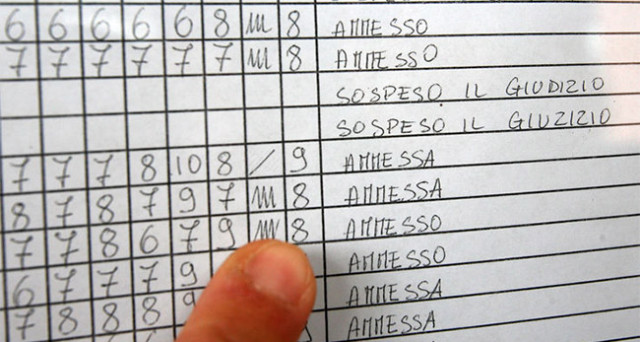 6 6 6 6 6 8 m 8 AMMESSO
7 7 7 7 7 7 m 8 AMMESSO
SOSPESO IL GIUDIZIO
SOSPESO IL GIUZIZIO
7 7 7 8 10 8 / 9 AMMESSA
8 7 8 7 9 7 m 8 AMMESSA
7 7 8 6 7 9 m 8 AMMESSO
6 7 7 7 9 AMMESSO
7 8 8 8 AMMESSA
AMMESSA